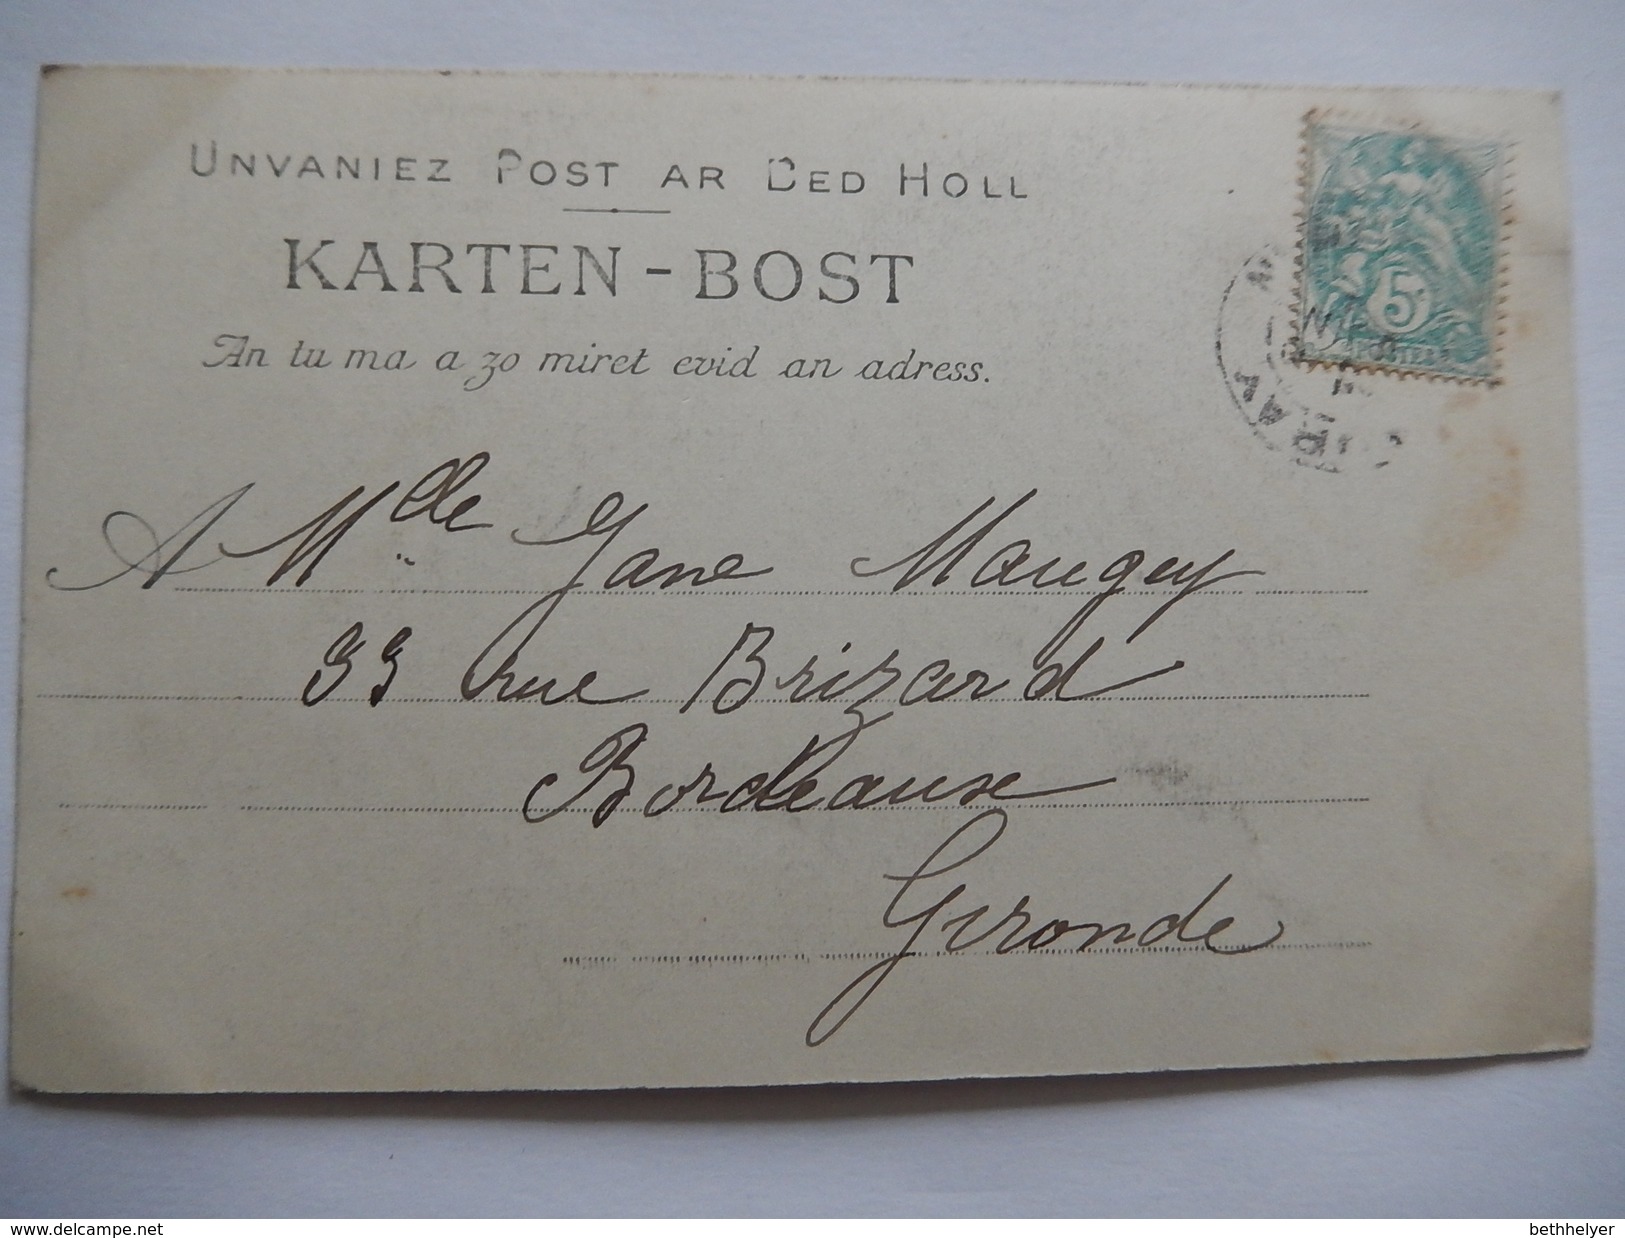 UNVANIEZ POST AR BED HOLL
KARTEN-BOST
An tu ma a zo miret evid an adress.
5
A Mlle Jane Maugey
33 rue Brizard
Bordeaux
Gironde
www.delcampe.net
bethhelyer